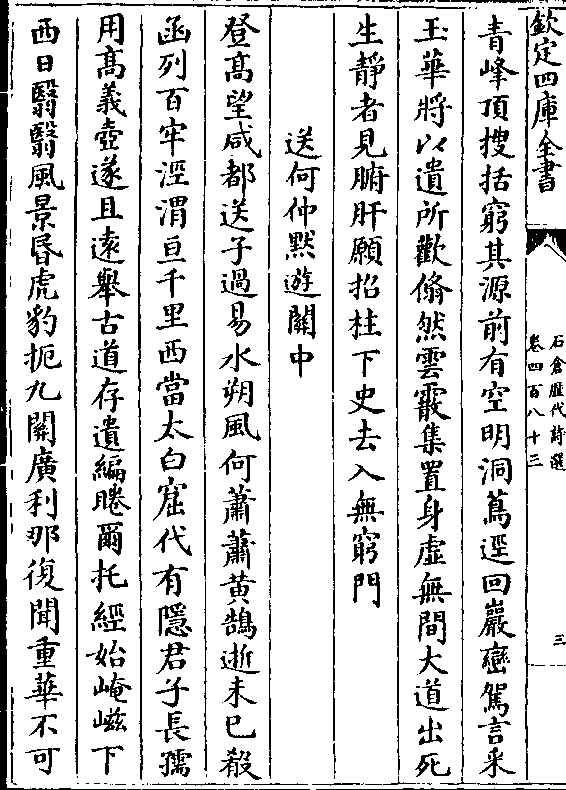 欽定四庫全書
石倉歷代詩選
卷四百八十三
三
青峰頂搜括窮其源前有空明洞蔦逕回巖巒駕言采
玉華將以遺所歡翛然雲霰集置身虛無間大道出死
生靜者見腑肝願招柱下史去入無窮門
送何仲默遊關中
登髙望咸都送子過易水朔風何蕭蕭黄鵠逝未已殽
函列百牢涇渭亘千里西當太白窟代有隱君子長孺
用髙義壺遂且遠舉古道存遺編睠爾托經始崦嵫下
西日翳翳風景昏虎豹扼九關廣利那復聞重華不可